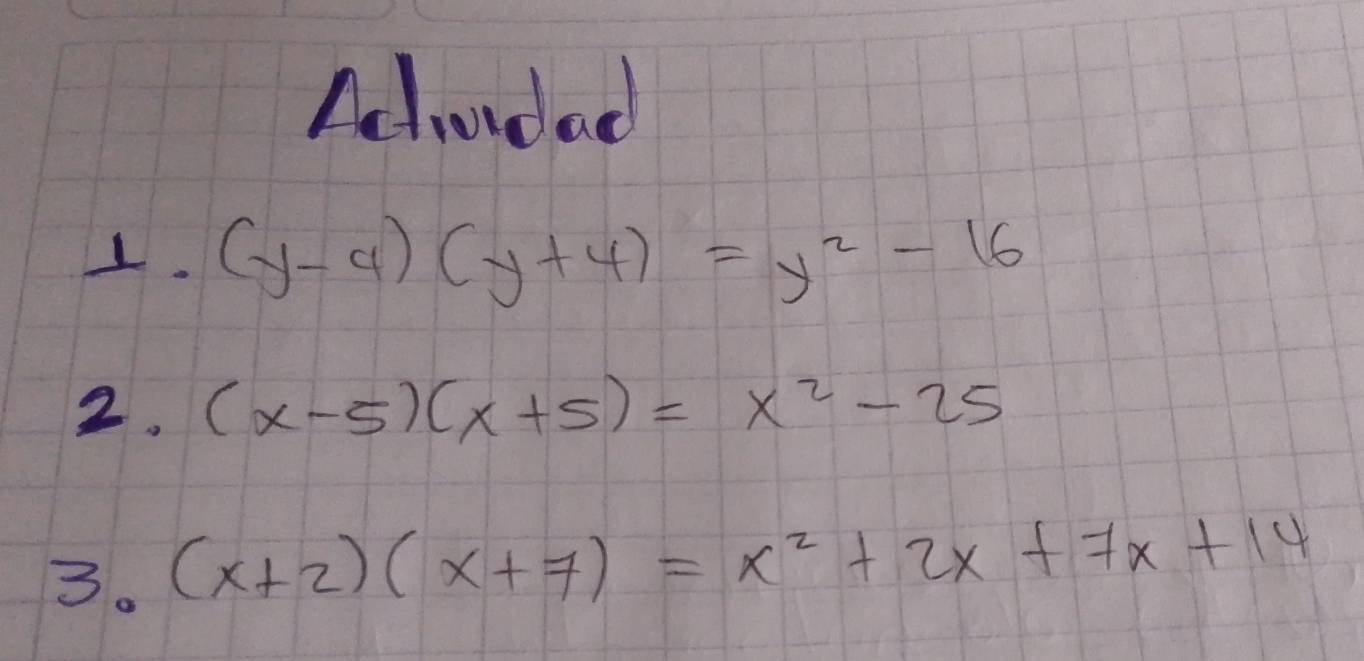 Actividad
1. (y-4)(y+4) = y² - 16
2. (x-5)(x+5) = x² - 25
3. (x+2)(x+7) = x² + 2x + 7x + 14